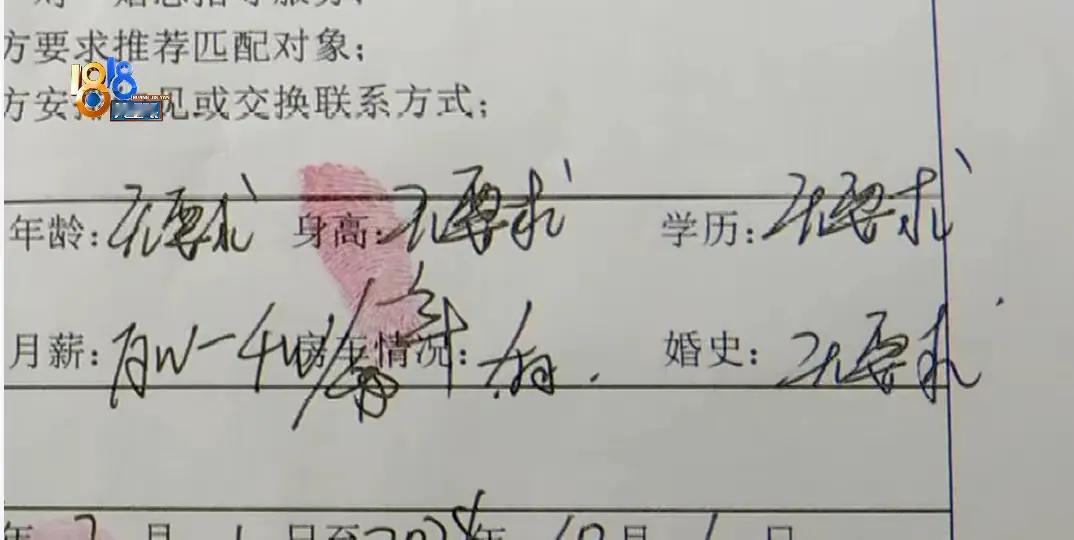 方要求推荐匹配对象;
1818
方安排 见或交换联系方式;
年龄: 无要求 身高: 无要求 学历: 无要求
月薪: 房车情况: 有. 婚史: 无要求
年 7 月 1 日至2024年 10月 1 日